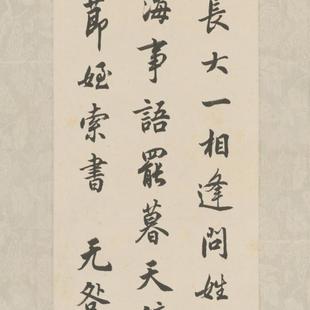 長大一相逢問姓
海事語罷暮天
莭姪索書 无咎